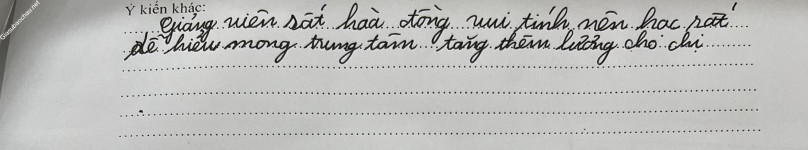 Ý kiến khác:
Giảng viên rất hoà đồng vui tính nên học rất
dễ hiểu mong trung tâm tăng thêm lương cho chị